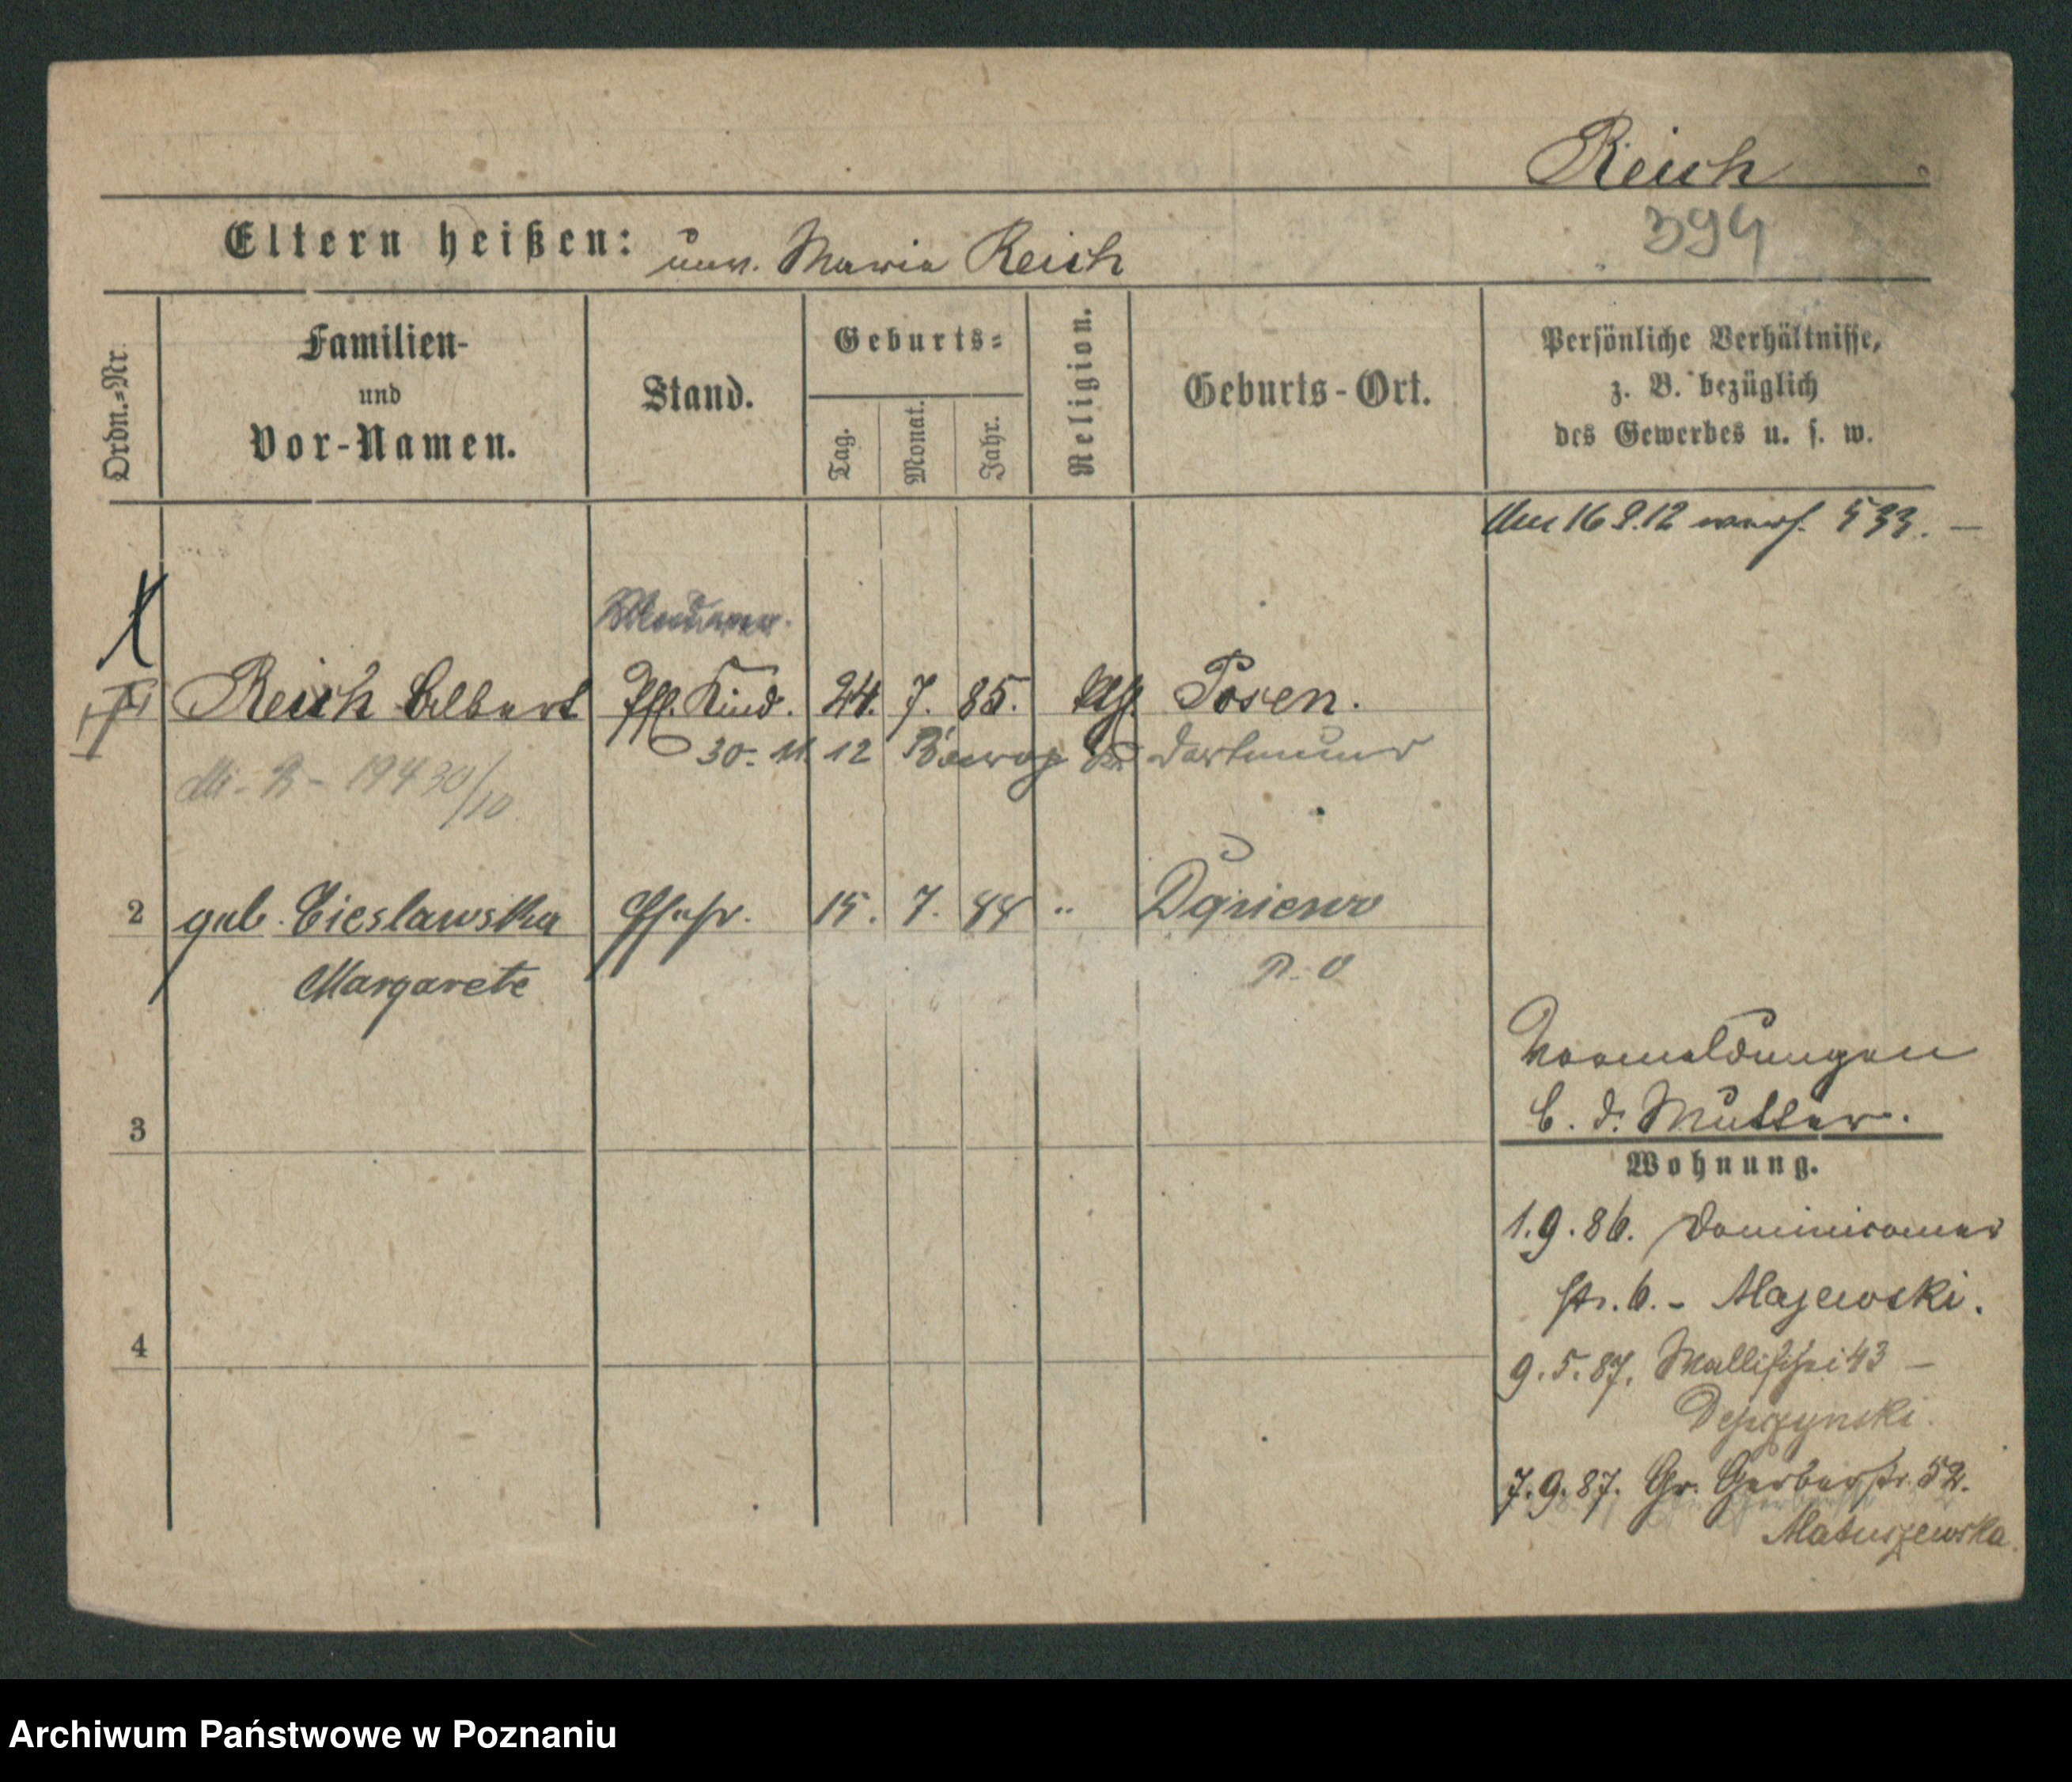 Reich
394
Eltern heißen: unv. Maria Reich
Ordn.=Nr.
Familien-
und
Vor-Namen.
Stand.
Geburts=
Tag.
Monat.
Jahr.
Religion.
Geburts-Ort.
Persönliche Verhältnisse,
z. B. bezüglich
des Gewerbes u. s. w.
Am 16 9.12 533. —
Reich Albert Pfl. Kind. 24. 7. 85. kth. Posen.
30. 11. 12 Dortmund
2 geb. Cieslawska Ehefr. 15. 7. 88 "
Margarete
P. O
Vormeldungen
b. d. Mutter.
3
Wohnung.
1.9.86. Dominicaner
str. 6. - Majewski.
4
9.5.87. Wallischei 43 —
7.9.87. Gr. Gerberstr. 52.
Matuszewska.
Archiwum Państwowe w Poznaniu